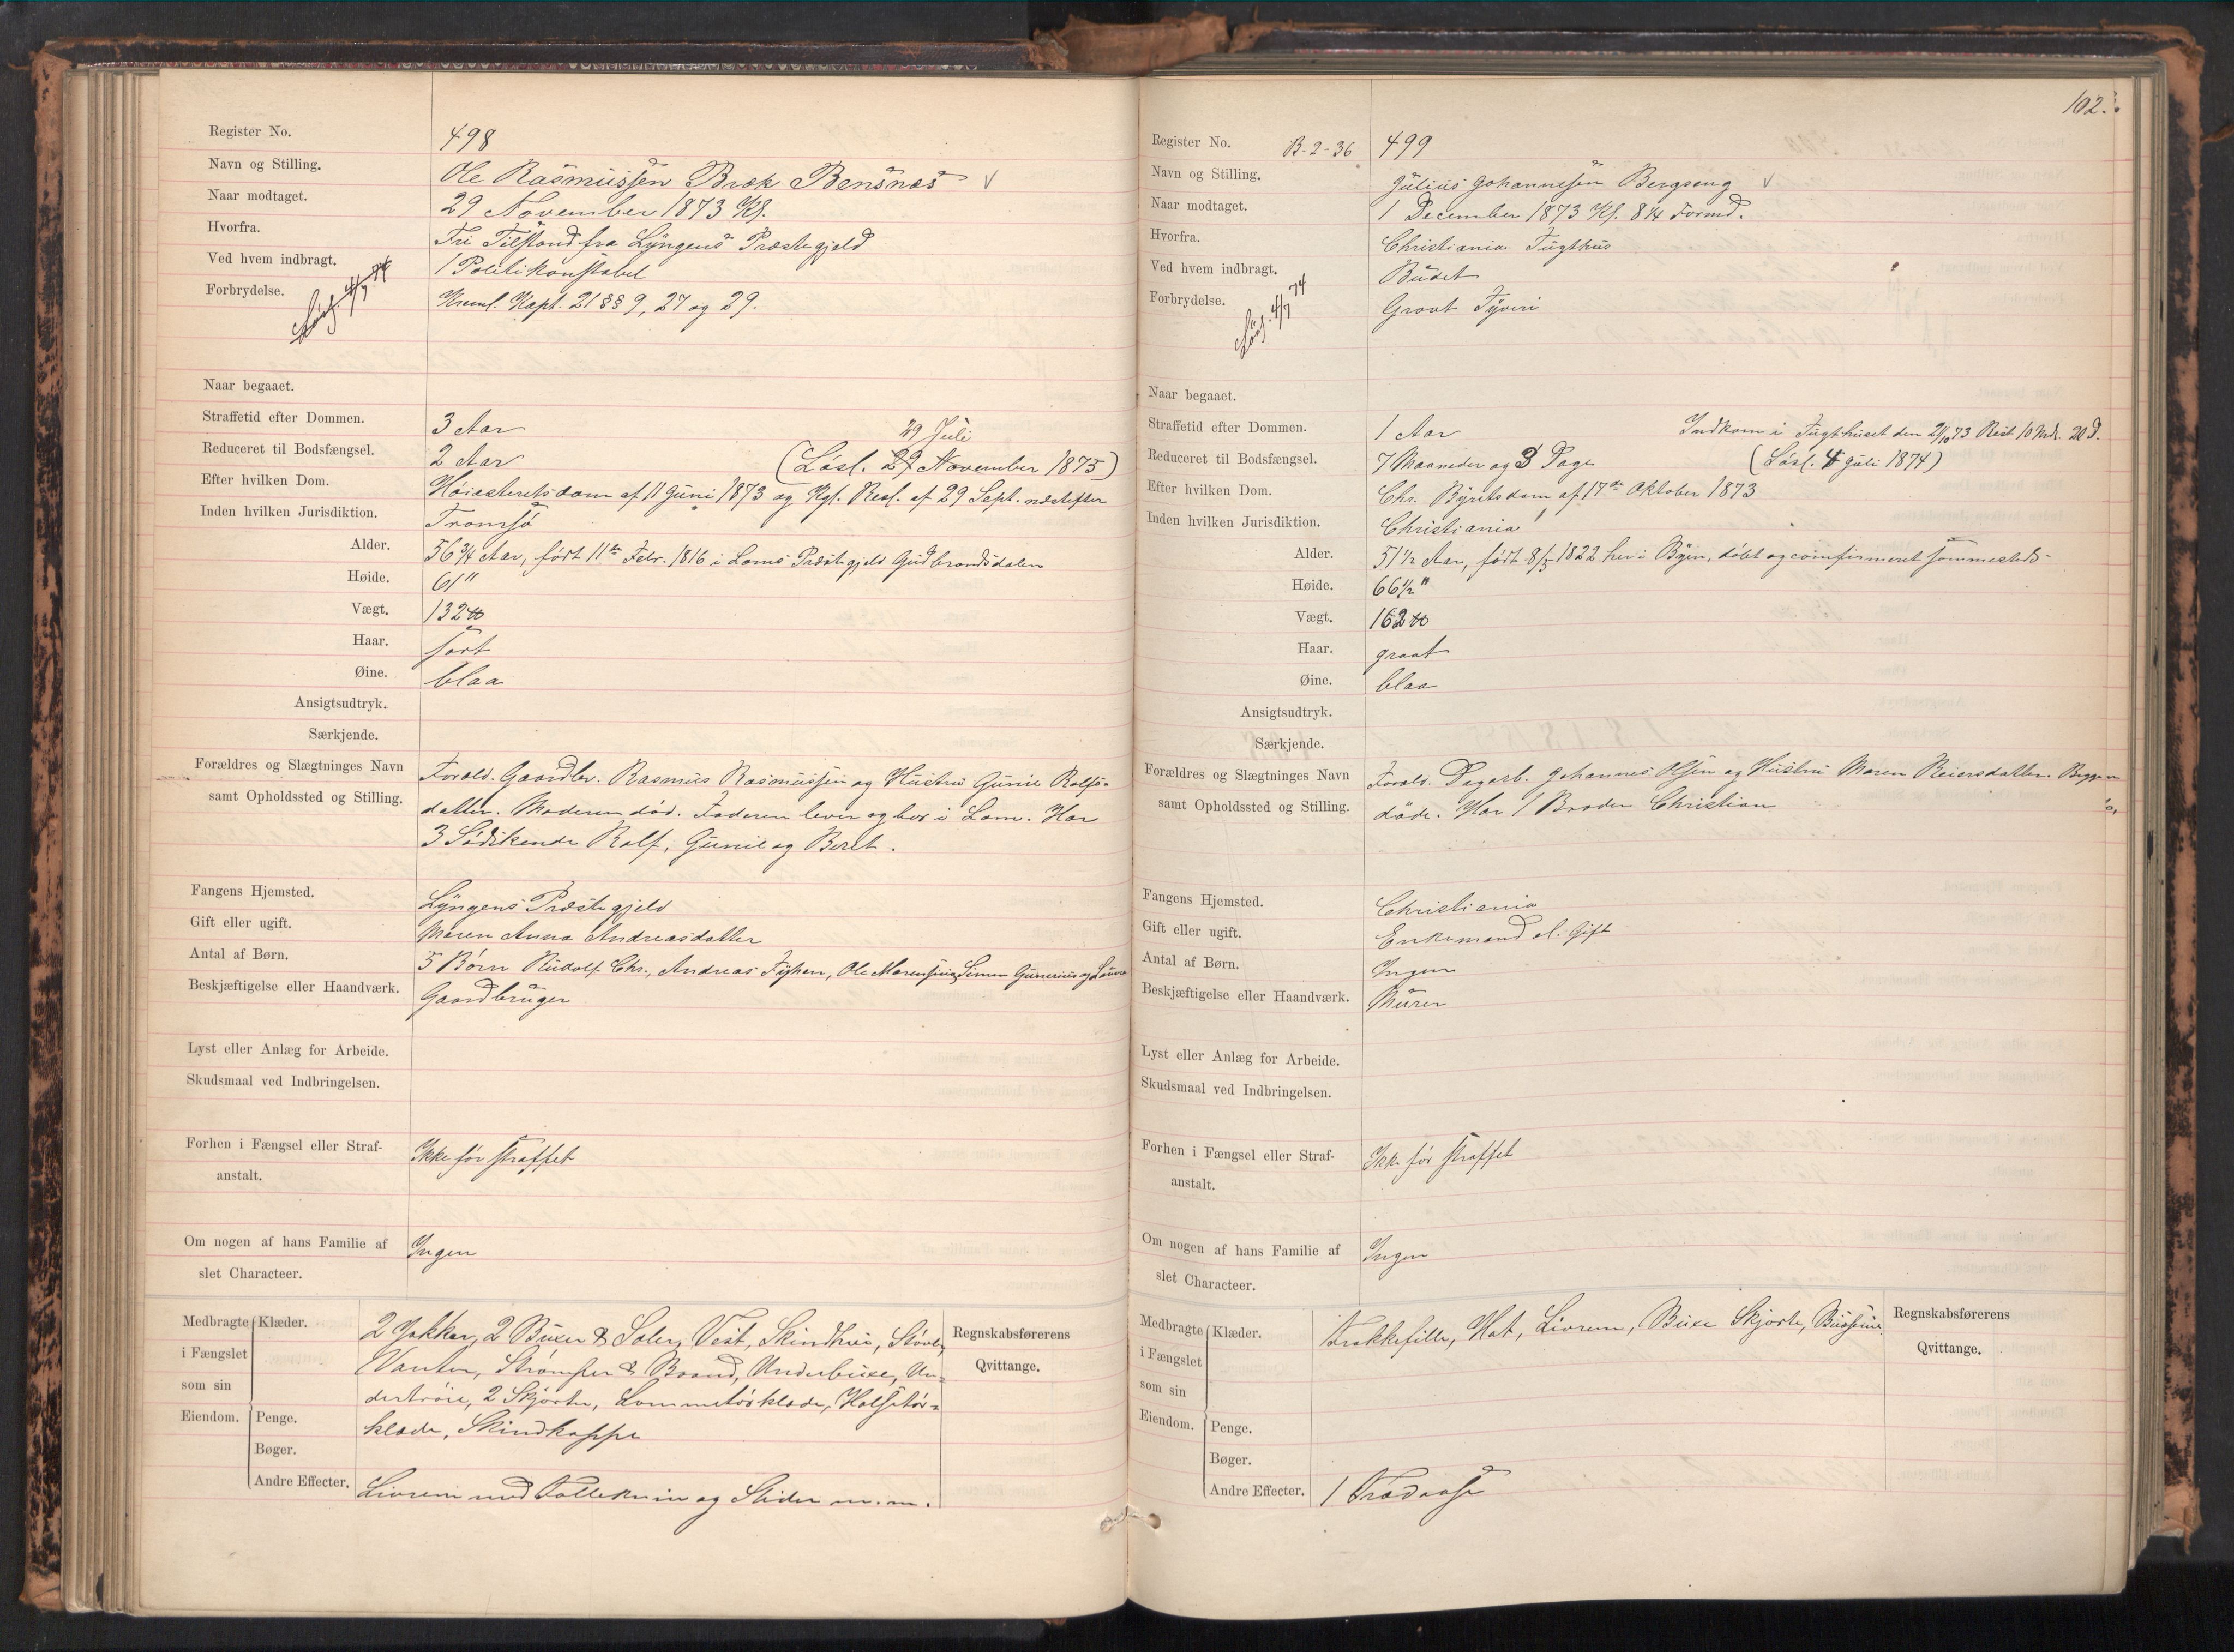 Register No. 498
Navn og Stilling. Ole Rasmussen Bræk Bensnæs √
Naar modtaget. 29 November 1873 Kl.
Hvorfra. Fri Tilstand fra Lyngens Præstegjeld
Ved hvem indbragt. 1 Politikonstabel
Forbrydelse. Løsl. 4/7 Kriml. Kapt. 21 §§ 9, 27 og 29.
Naar begaaet.
Straffetid efter Dommen. 3 Aar 29 Juli
Reduceret til Bodsfængsel. 2 Aar (Løsl. 29 November 1875)
Efter hvilken Dom. Høiesteretsdom af 11 Juni 1873 og Kgl. Resl. af 29 Sept. næstefter
Inden hvilken Jurisdiktion. Tromsø
Alder. 56 3/4 Aar, født 11te Febr. 1816 i Loms Præstegjeld Gudbrandsdalen
Høide. 61"
Vægt. 132 ℔
Haar. sort
Øine. blaa
Ansigtsudtryk.
Særkjende.
Forældres og Slægtninges Navn Foræld. Gaardbr. Rasmus Rasmussen og Hustru Gunil Rolfs-
samt Opholdssted og Stilling. datter. Moderen død. Faderen lever og bor i Lom. Har
3 Sødskende Rolf, Gunil og Beret.
Fangens Hjemsted. Lyngens Præstegjeld
Gift eller ugift. Maren Anna Andreasdatter
Antal af Børn. 5 Børn Rudolf Chr., Andreas, Ole, Simen Gunerius og
Beskjæftigelse eller Haandværk. Gaardbruger
Lyst eller Anlæg for Arbeide.
Skudsmaal ved Indbringelsen.
Forhen i Fængsel eller Straf- Ikke før straffet
anstalt.
Om nogen af hans Familie af Ingen
slet Characteer.
Medbragte Klæder. 2 Jakker, 2 Buxer & Seler, Vest, Skindhue, Støvler, Regnskabsførerens
i Fængslet Vanter, Strømper & Baand, Underbuxe, Un- Qvittange.
som sin dertrøie, 2 Skjorter, Lommetørklæde, Halstør-
Eiendom. Penge. klæde, Skindkappe
Bøger.
Andre Effecter. Livrem med Tolleknive og Slider m. m.
102.
Register No. B-2-36 499
Navn og Stilling. Julius Johannesen Bergseng √
Naar modtaget. 1 December 1873 Kl. 8 1/4 Formd.
Hvorfra. Christiania Tugthus
Ved hvem indbragt. Budet
Forbrydelse. Løsl. 4/7 74 Grovt Tyveri
Naar begaaet.
Straffetid efter Dommen. 1 Aar Indkom i Tugthuset den 21/10 73 Rest 10 Mdr. 20 D.
Reduceret til Bodsfængsel. 7 Maaneder og 3 Dage (Løsl. 4 Juli 1874)
Efter hvilken Dom. Chr. Byretsdom af 17de Oktober 1873
Inden hvilken Jurisdiktion. Christiania
Alder. 51 1/2 Aar, født 8/5 1822 her i Byen, døbt og confirmeret sammesteds
Høide. 66 1/2"
Vægt. 162 ℔
Haar. graat
Øine. blaa
Ansigtsudtryk.
Særkjende.
Forældres og Slægtninges Navn Foræld. Dagarb. Johannes Olsen og Hustru Maren Reiersdatter. Begge
samt Opholdssted og Stilling. døde. Har 1 Broder Christian
Fangens Hjemsted. Christiania
Gift eller ugift. Enkemand el. Gift
Antal af Børn. Ingen
Beskjæftigelse eller Haandværk. Murer
Lyst eller Anlæg for Arbeide.
Skudsmaal ved Indbringelsen.
Forhen i Fængsel eller Straf- Ikke før straffet
anstalt.
Om nogen af hans Familie af Ingen
slet Characteer.
Medbragte Klæder. Frakkefille, Hat, Livrem, Buxe Skjorte, Regnskabsførerens
i Fængslet Qvittange.
som sin
Eiendom. Penge.
Bøger.
Andre Effecter. 1